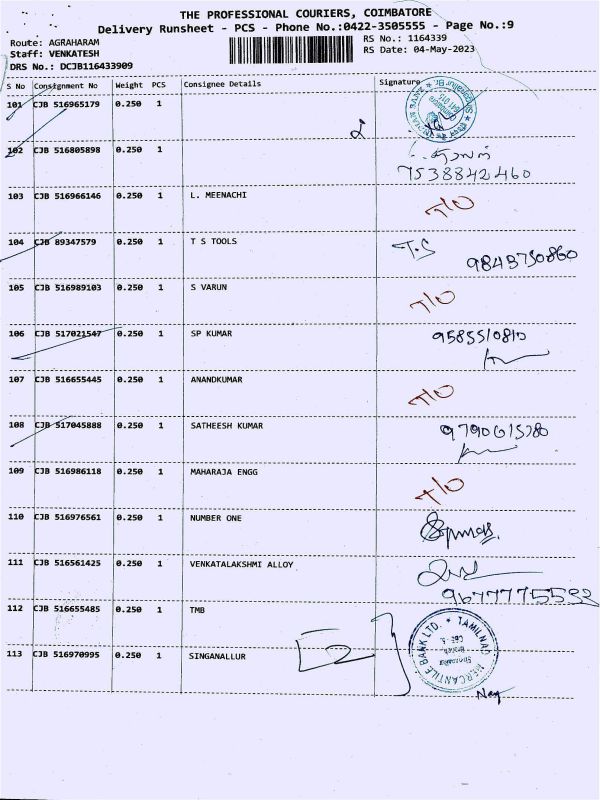 THE PROFESSIONAL COURIERS, COIMBATORE
Delivery Runsheet - PCS - Phone No.:0422-3505555 - Page No.:9
Route: AGRAHARAM
Staff: VENKATESH
DRS No.: DCJB116433909
RS No.: 1164339
RS Date: 04-May-2023
S No Consignment No Weight PCS Consignee Details Signature
101 CJB 516965179 0.250 1
102 CJB 516805898 0.250 1
7538842460
103 CJB 516966146 0.250 1 L. MEENACHI T/O
104 CJB 89347579 0.250 1 T S TOOLS T.S
9843730860
105 CJB 516989103 0.250 1 S VARUN T/O
106 CJB 517021547 0.250 1 SP KUMAR 9585510810
107 CJB 516655445 0.250 1 ANANDKUMAR T/O
108 CJB 517045888 0.250 1 SATHEESH KUMAR
109 CJB 516986118 0.250 1 MAHARAJA ENGG T/O
110 CJB 516976561 0.250 1 NUMBER ONE
111 CJB 516561425 0.250 1 VENKATALAKSHMI ALLOY
112 CJB 516655485 0.250 1 TMB
TAMILNAD MERCANTILE BANK LTD.
113 CJB 516970995 0.250 1 SINGANALLUR